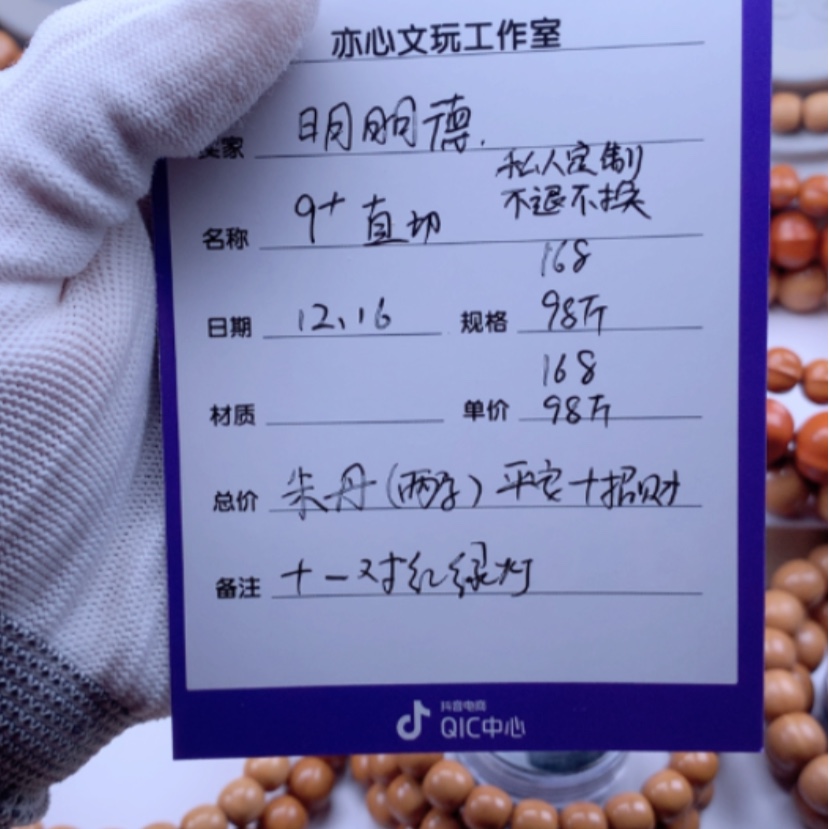 亦心文玩工作室
卖家 明明德.
私人定制
名称 9+ 直切 不退不换
168
日期 12、16 规格 98斤
168
材质 单价 98斤
总价 朱丹(两子)平安+招财
备注 +一对红绿灯
抖音电商
QIC中心